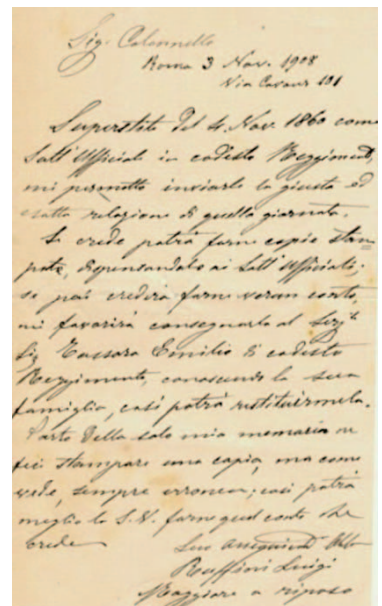 Sig. Colonnello
Roma 3 Nov. 1908
Via Cavour 101
Superstite del 4 Nov. 1860 come
Sott'Ufficiale in codesto Reggimento,
mi permetto inviarle la giusta ed
esatta relazione di quella giornata.
Se crede potrà farne copie stam=
pate, dispensandole ai Sott'Ufficiali;
se poi crederà farne verun conto,
mi favorirà consegnarla al Serg.te
Sig Tassara Emilio di codesto
Reggimento, conoscendo la sua
famiglia, così potrà restituirmela.
Parto della sola mia memoria ne
feci stampare una copia, ma come
vede, sempre erronea; così potrà
meglio la S.V. farne quel conto che
crede
Suo
Ruffini Luigi
Maggiore a riposo